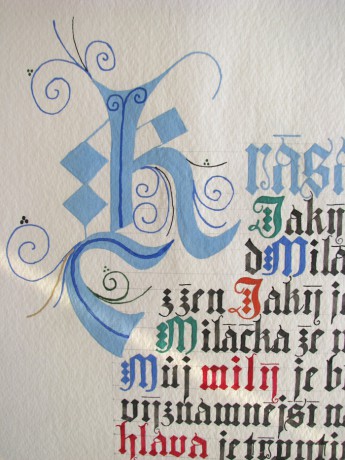 Krása
Jaký
d Milá
z žen Jaký je
Miláčka že
Můj milý je b
význačnější na
hlava je třpyti